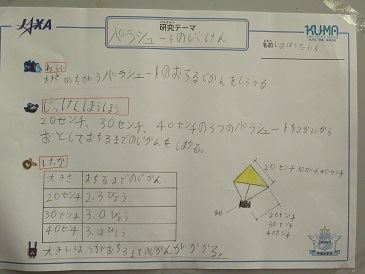 JAXA
研究テーマ
KUMA
パラシュートのじっけん
名前 しのはらたいち
ねらい
大きさのちがうパラシュートのおちるじかんをしらべる
じっけんほうほう
20センチ、30センチ、40センチの3つのパラシュートを2かいから
おとしておちるまでのじかんをはかる。
けっか
大きさ おちるまでのじかん
20センチ 2.3びょう
30センチ 3.0びょう
40センチ 3.9びょう
20センチ、30センチ、40センチ
20センチ
30センチ
40センチ
大きいほうがおちるまでのじかんがかかる。